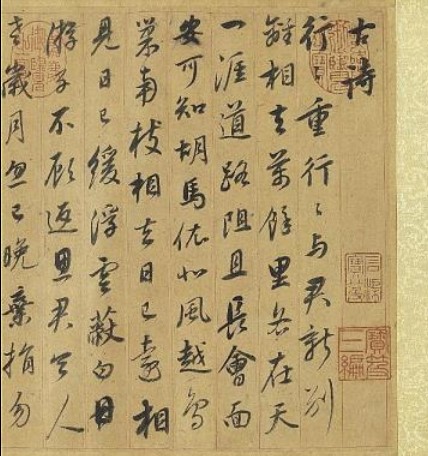 古詩
行〻重行〻与君新别
離相去萬餘里各在天
一涯道路阻且長會面
安可知胡馬依北風越鳥
巢南枝相去日已遠相
見日已緩浮雲蔽白日
游子不顧返思君令人
老歲月忽已晚棄捐勿
石渠寶笈
寶笈三編